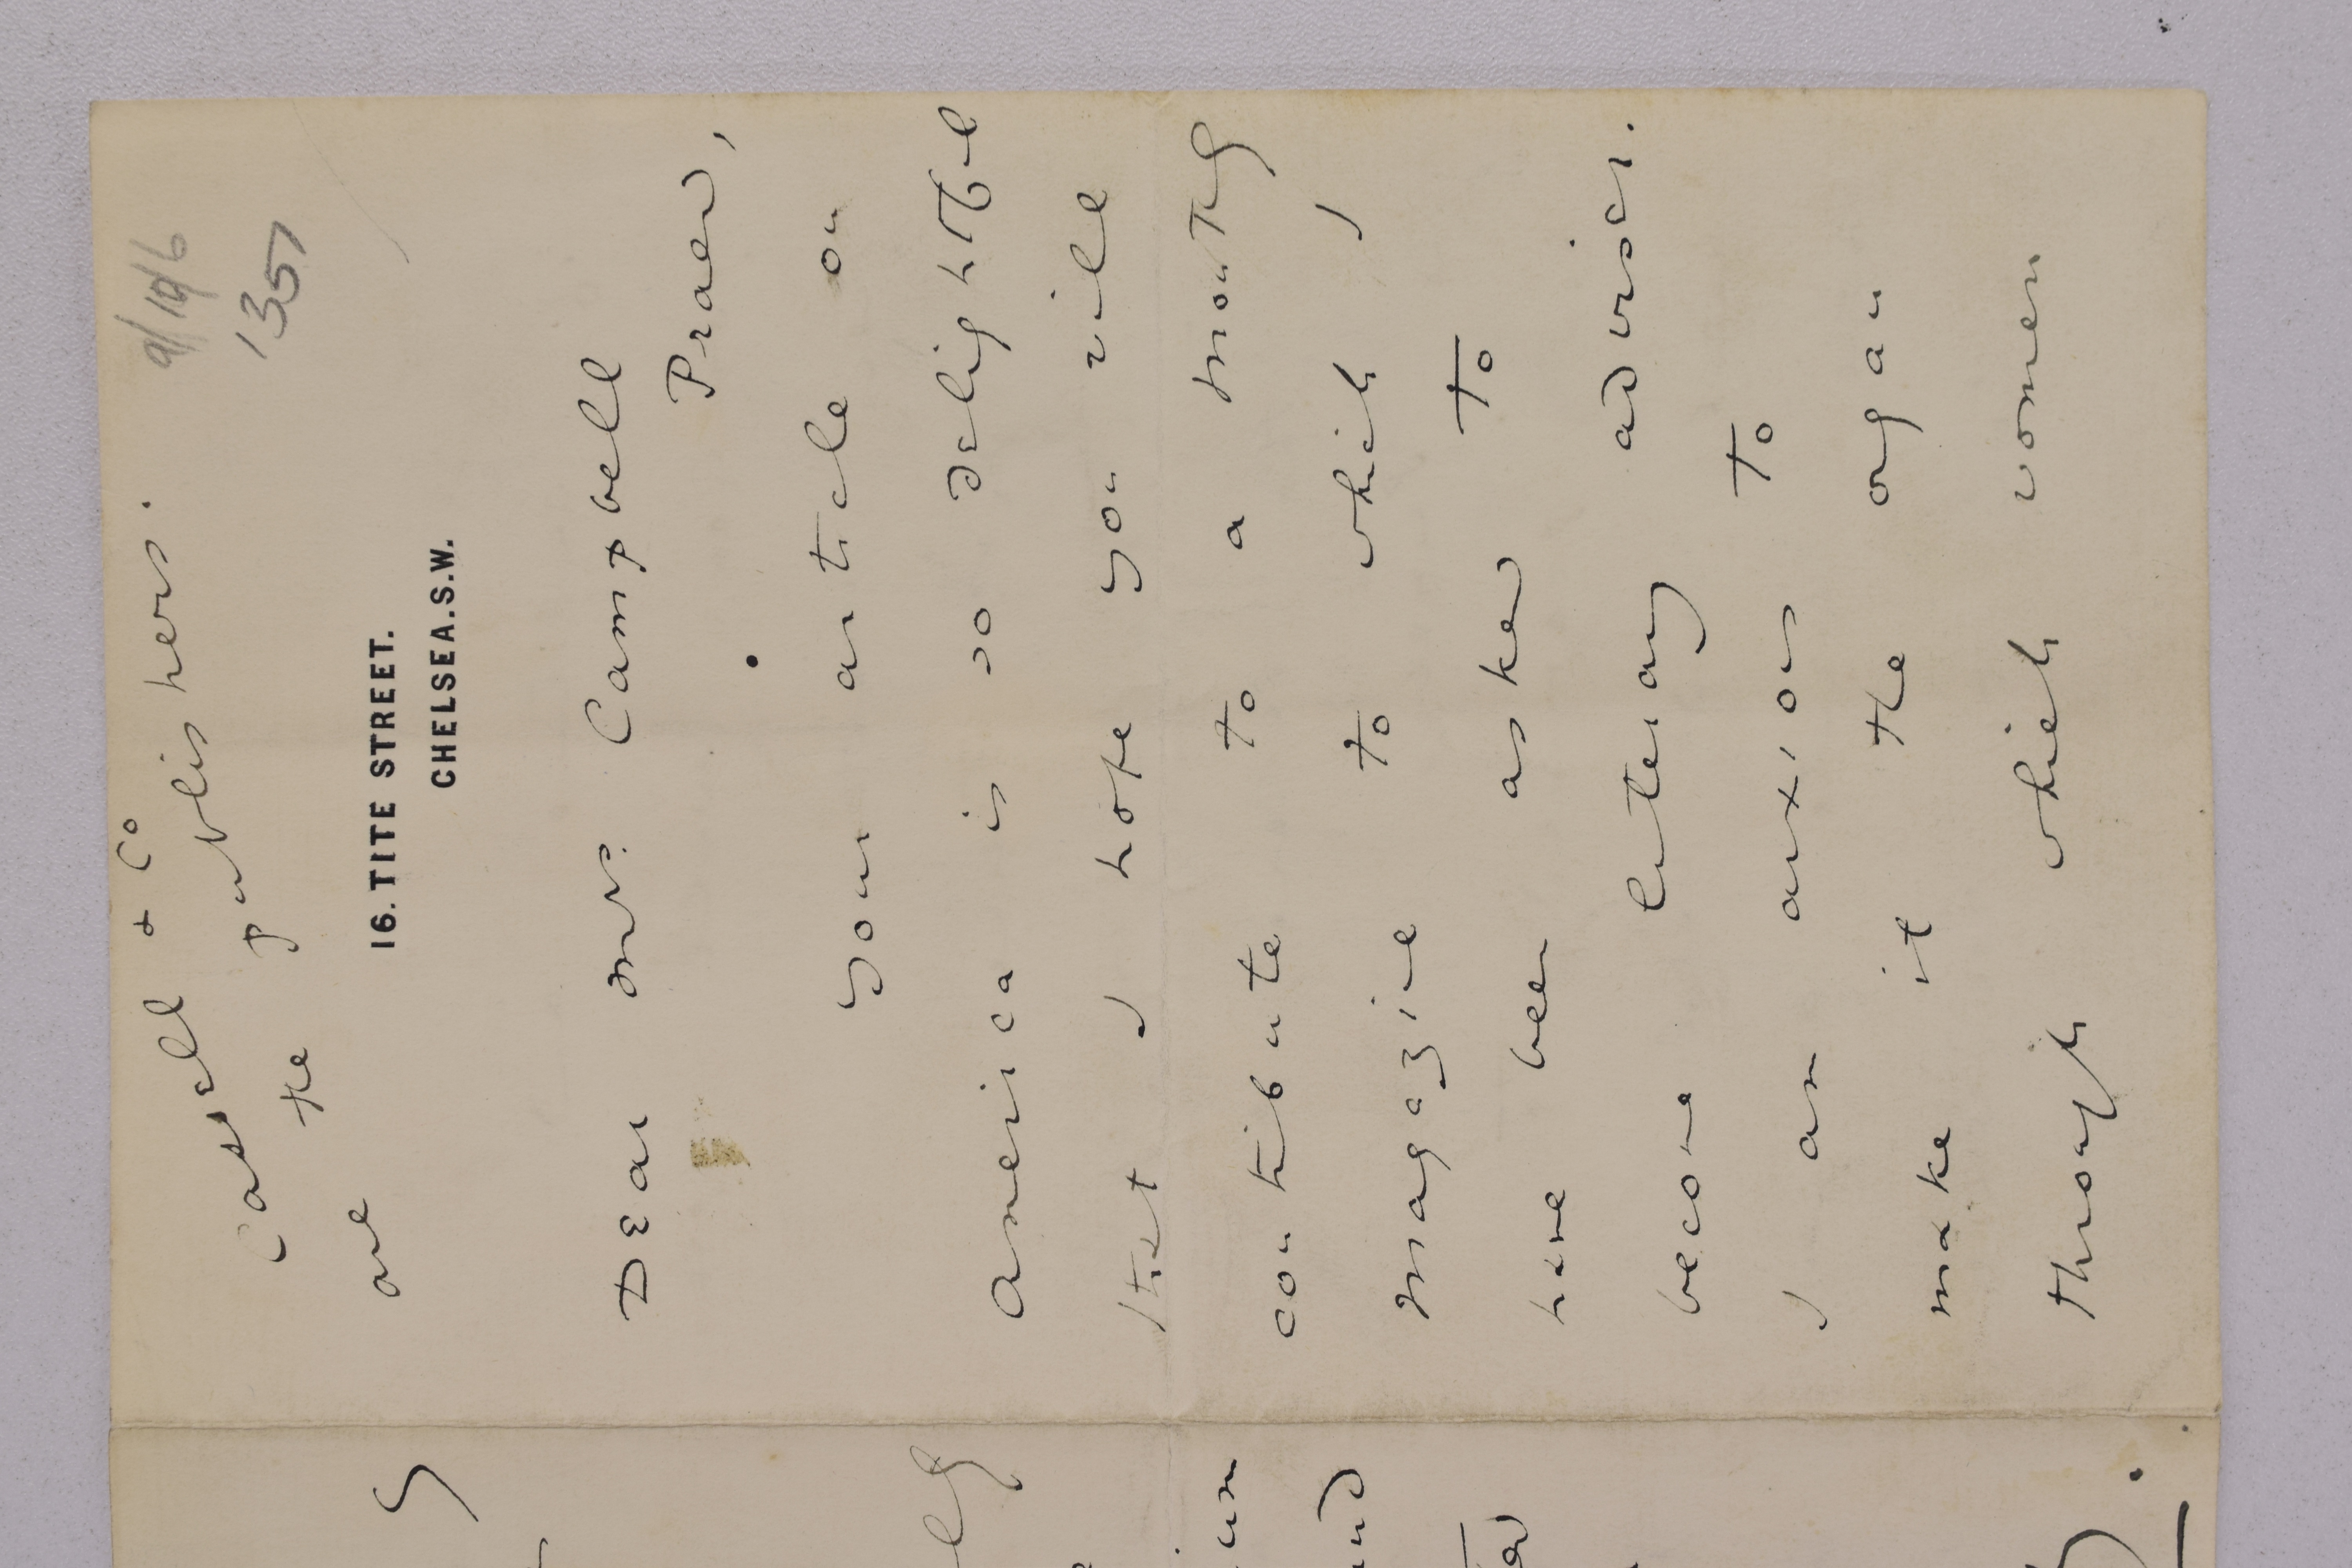 9/10/6
1357
Cassell & Co
are the publishers.
16. TITE STREET.
CHELSEA. S.W.
Dear Mrs. Campbell
Praed,
Your article on
America is so delightful
that I hope you will
contribute to a monthly
magazine to which I
have been asked to
become literary adviser.
I am anxious to
make it the organ
through which women